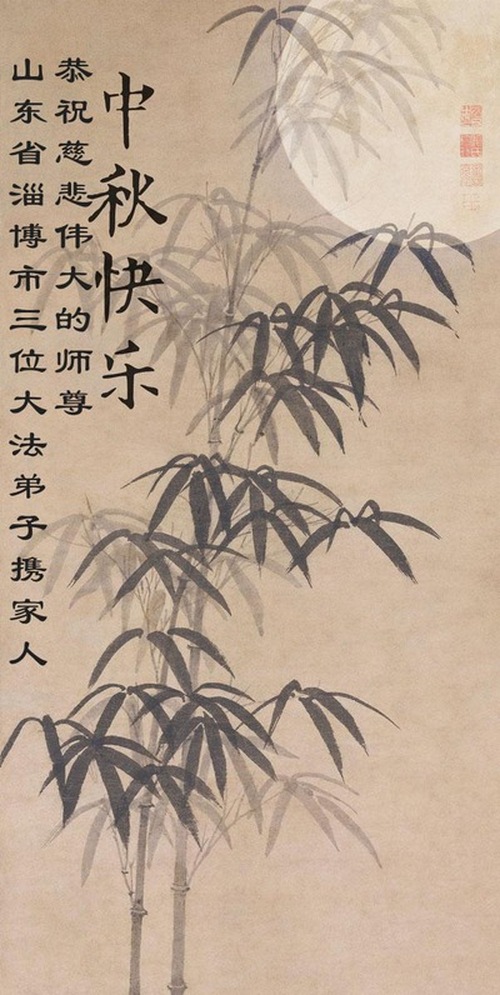 恭祝慈悲伟大的师尊
中秋快乐
山东省淄博市三位大法弟子携家人